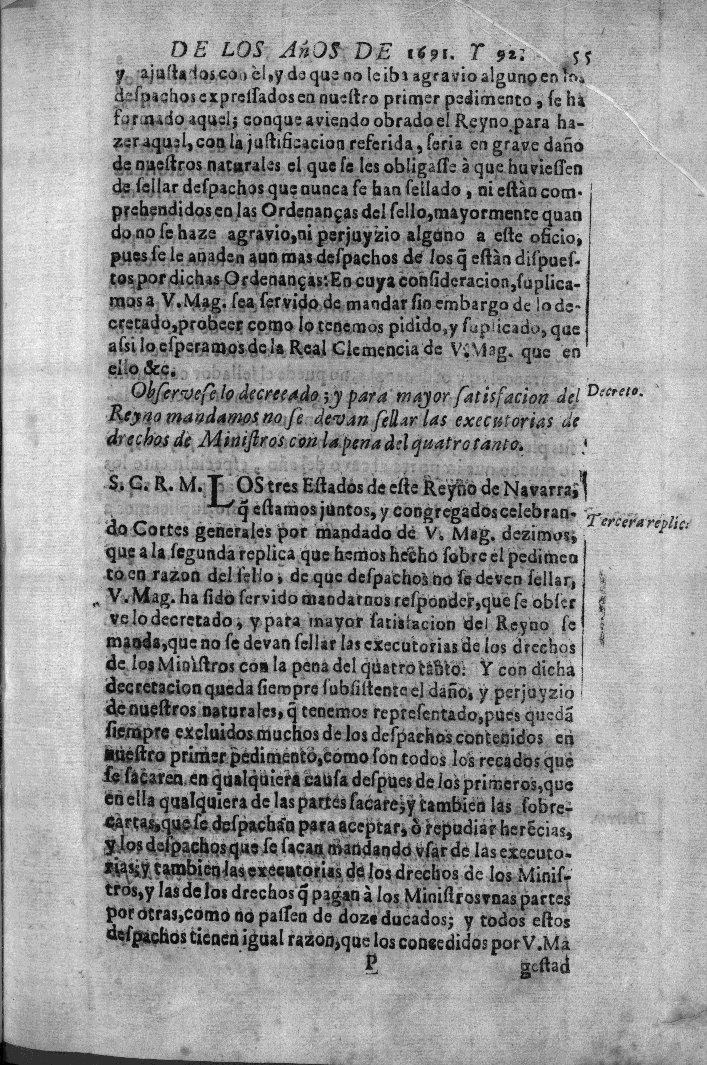 DE LOS AñOS DE 1691. Y 92. 55
y ajustados con èl, y de que no le iba agravio alguno en los
despachos expressados en nuestro primer pedimento, se ha
formado aquel; conque aviendo obrado el Reyno para ha-
zer aquel, con la justificacion referida, seria en grave daño
de nuestros naturales el que se les obligasse à que huviessen
de sellar despachos que nunca se han sellado, ni estàn com-
prehendidos en las Ordenanças del sello, mayormente quan
do no se haze agravio, ni perjuyzio alguno a este oficio,
pues se le añaden aun mas despachos de los q̃ estàn dispues-
tos por dichas Ordenanças: En cuya consideracion, suplica-
mos a V. Mag. sea servido de mandar sin embargo de lo de-
cretado, probeer como lo tenemos pidido, y suplicado, que
assi lo esperamos de la Real Clemencia de V. Mag. que en
ello &c.
Observese lo decretado; y para mayor satisfacion del
Reyno mandamos no se devan sellar las executorias de
drechos de Ministros con la pena del quatro tanto.
Decreto.
S. C. R. M. LOS tres Estados de este Reyno de Navarra,
q̃ estamos juntos, y congregados celebran-
do Cortes generales por mandado de V. Mag. dezimos,
Tercera replica
que a la segunda replica que hemos hecho sobre el pedimen
to en razon del sello, de que despachos no se deven sellar,
V. Mag. ha sido servido mandarnos responder, que se obser
ve lo decretado, y para mayor satisfacion del Reyno se
manda, que no se devan sellar las executorias de los drechos
de los Ministros con la pena del quatro tanto. Y con dicha
decretacion queda siempre subsistente el daño, y perjuyzio
de nuestros naturales, q̃ tenemos representado, pues quedã
siempre excluidos muchos de los despachos contenidos en
nuestro primer pedimento, como son todos los recados que
se sacaren en qualquiera causa despues de los primeros, que
en ella qualquiera de las partes sacare; y tambien las sobre-
cartas, que se despachan para aceptar, ò repudiar herẽcias,
y los despachos que se sacan mandando vsar de las executo-
rias; y tambien las executorias de los drechos de los Minis-
tros, y las de los drechos q̃ pagan à los Ministros vnas partes
por otras, como no passen de doze ducados; y todos estos
despachos tienen igual razon, que los concedidos por V. Ma
P gestad